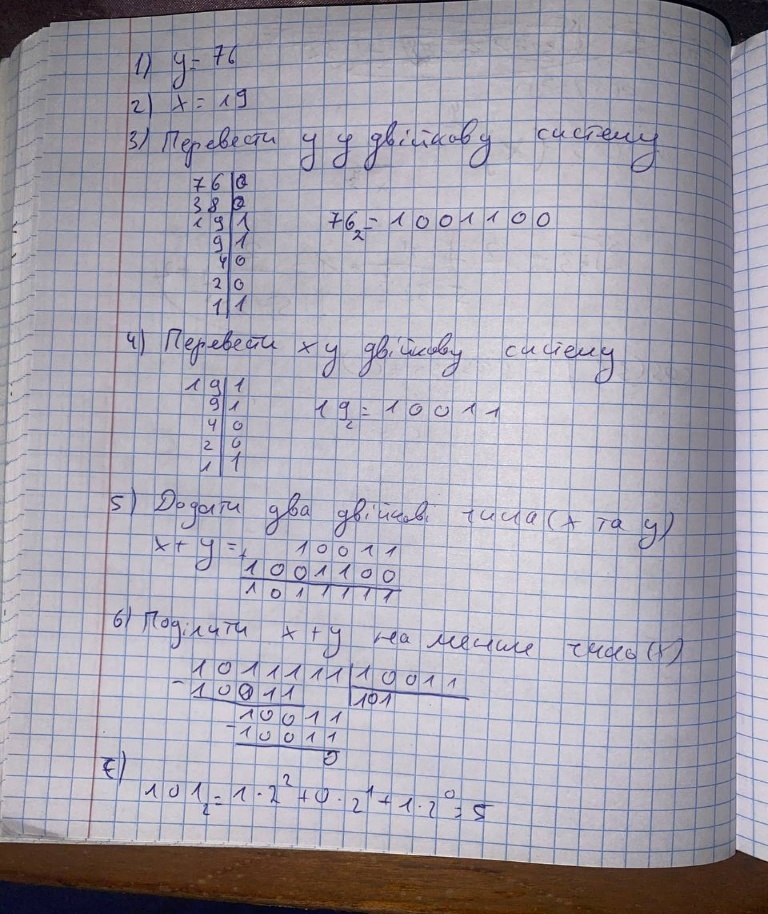 1) y = 76
2) x = 19
3) Перевести y у двійкову систему
76|0
38|0
19|1 76₂ = 1001100
9|1
40
2|0
1|1
4) Перевести x у двійкову систему
19|1
9|1 19₂ = 10011
4|0
2|0
1|1
5) Додати два двійкові числа (x та y)
x + y = + 10011
1001100
1011111
6) Поділити x + y на менше число (x)
1011111|10011
- 10011 |101
10011
- 10011
0
7)
101₂ = 1·2² + 0·2¹ + 1·2⁰ = 5